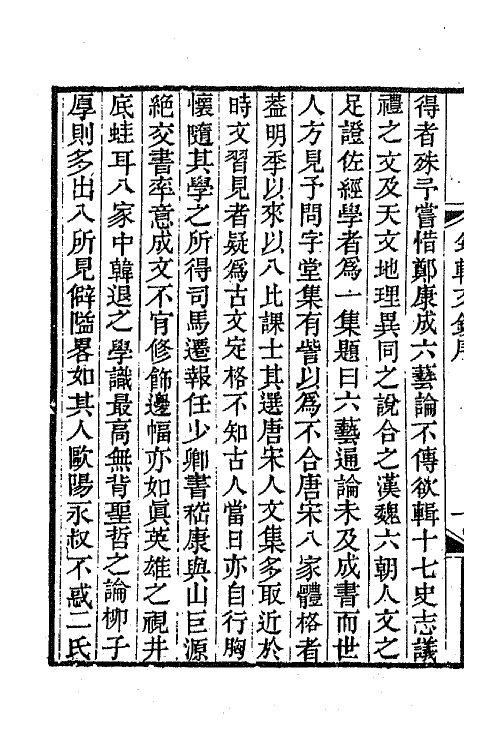 得者殊予嘗惜鄭康成六藝論不傳欲輯十七史志議
禮之文及天文地理異同之說合之漢魏六朝人文之
足證佐經學者爲一集題曰六藝通論未及成書而世
人方見予問字堂集有訾以爲不合唐宋八家體格者
葢明季以來以八比課士其選唐宋人文集多取近於
時文習見者疑爲古文定格不知古人當日亦自行胸
懷隨其學之所得司馬遷報任少卿書嵇康與山巨源
絕交書率意成文不肎修飾邊幅亦如眞英雄之視井
底蛙耳八家中韓退之學識最高無背聖哲之論柳子
厚則多出入所見僻隘畧如其人歐陽永叔不惑二氏